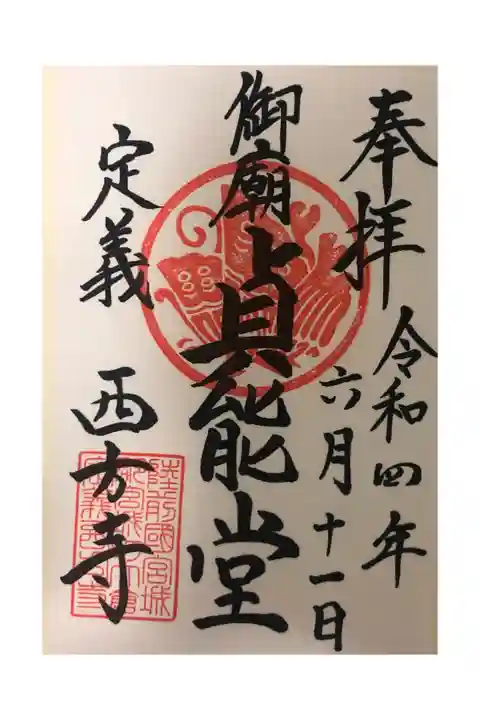 奉拝
令和四年
六月十一日
御廟貞能堂
定義
西方寺
陸前國宮城